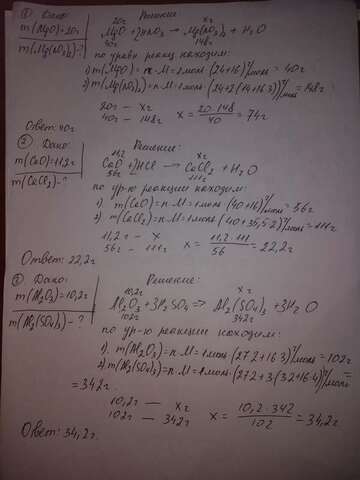 ① Дано: Решение
20г xг
m(MgO)=20г MgO+2HNO₃ → Mg(NO₃)₂ + H₂O
m(Mg(NO₃)₂)-? 40г 148г
по уравн реакц находим:
1) m(MgO) = n·M=1моль·(24+16)г/моль = 40г
2) m(Mg(NO₃)₂)=n·M=1моль·(24+2(14+16·3))г/моль=148г
20г - xг
40г - 148г x = 20·148/40 = 74г
Ответ: 40г
② Дано: Решение:
11,2г xг
m(CaO)=11,2г CaO+2HCl → CaCl₂ + H₂O
m(CaCl₂)-? 56г 111г
по ур-ю реакции находим:
1) m(CaO)=n·M=1моль·(40+16)г/моль=56г
2) m(CaCl₂)=n·M=1моль·(40+35,5·2)г/моль=111г
11,2г — x
56г - 111г x = 11,2·111/56 = 22,2г
Ответ: 22,2г
③ Дано: Решение:
10,2г xг
m(Al₂O₃)=10,2г Al₂O₃+3H₂SO₄ ⇒ Al₂(SO₄)₃ +3H₂O
m(Al₂(SO₄)₃)-? 102г 342г
по ур-ю реакции находим:
1). m(Al₂O₃)=n·M=1моль·(27·2+16·3)г/моль=102г
2). m(Al₂(SO₄)₃)=n·M=1моль·(27·2+3(32+16·4)г/моль=
=342г.
10,2г — xг
102г — 342г x = 10,2·342/102 = 34,2г
Ответ: 34,2г.